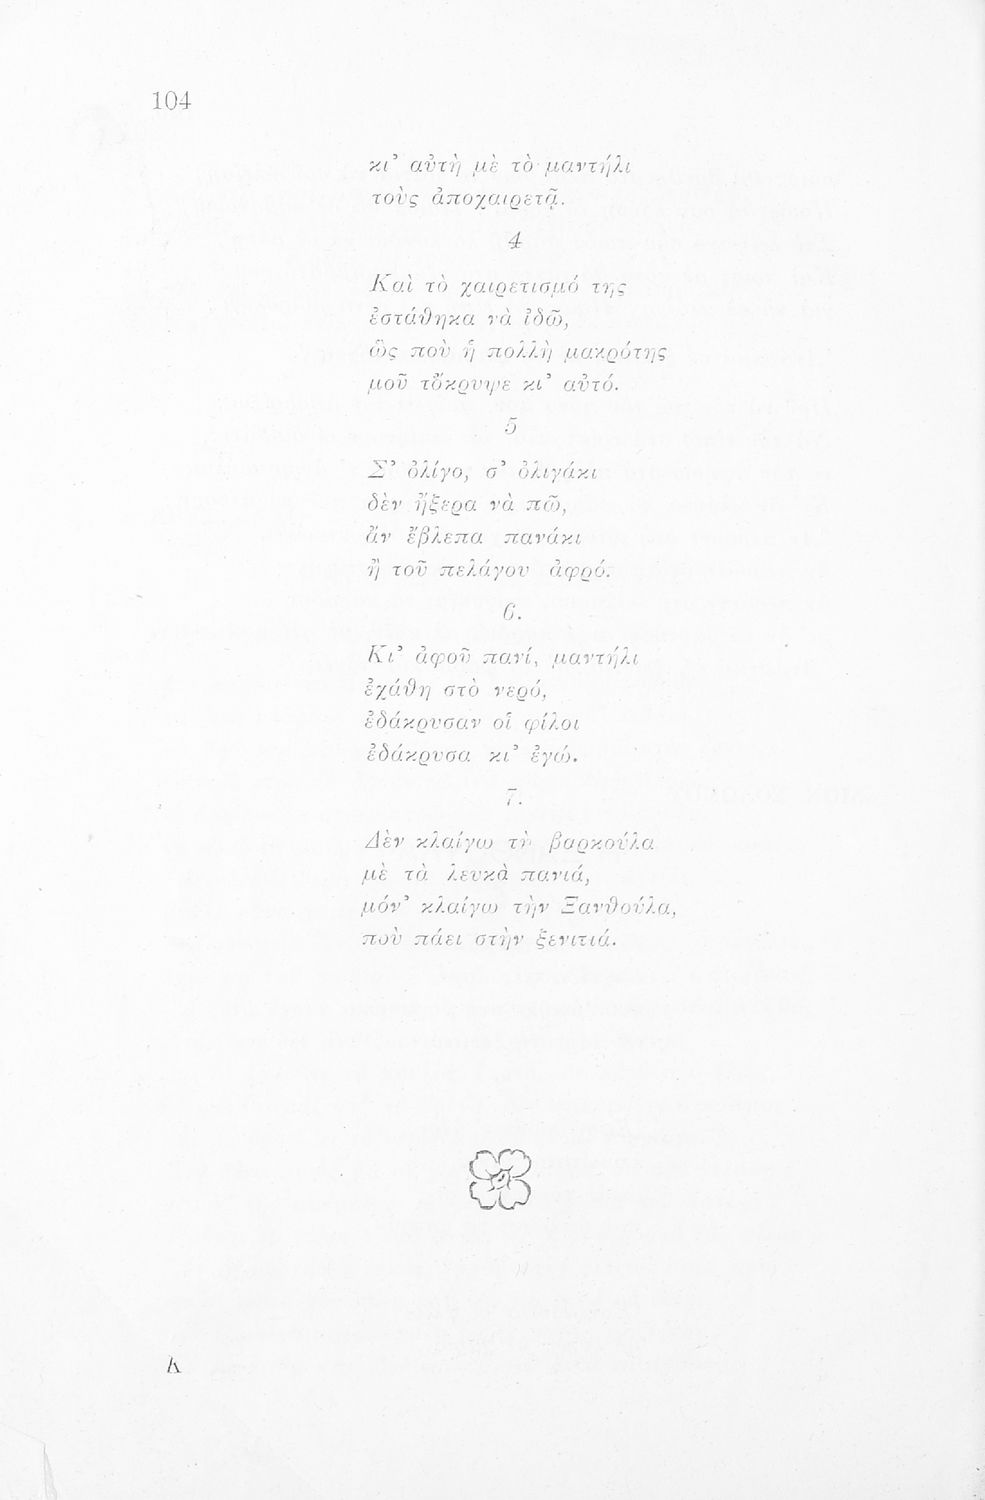 104
κι’ αὐτὴ μὲ τὸ μαντήλι
τοὺς ἀποχαιρετᾷ.
4
Καὶ τὸ χαιρετισμό της
ἐστάθηκα νὰ ἰδῶ,
ὣς ποὺ ἡ πολλὴ μακρότης
μοῦ τὄκρυψε κι’ αὐτό.
5
Σ’ ὀλίγο, σ’ ὀλιγάκι
δὲν ἤξερα νὰ πῶ,
ἂν ἔβλεπα πανάκι
ἢ τοῦ πελάγου ἀφρό.
6.
Κι’ ἀφοῦ πανί, μαντήλι
ἐχάθη στὸ νερό,
ἐδάκρυσαν οἱ φίλοι
ἐδάκρυσα κι’ ἐγώ.
7.
Δὲν κλαίγω τὴ βαρκούλα
μὲ τὰ λευκὰ πανιά,
μόν’ κλαίγω τὴν Ξανθούλα,
ποὺ πάει στὴν ξενιτιά.